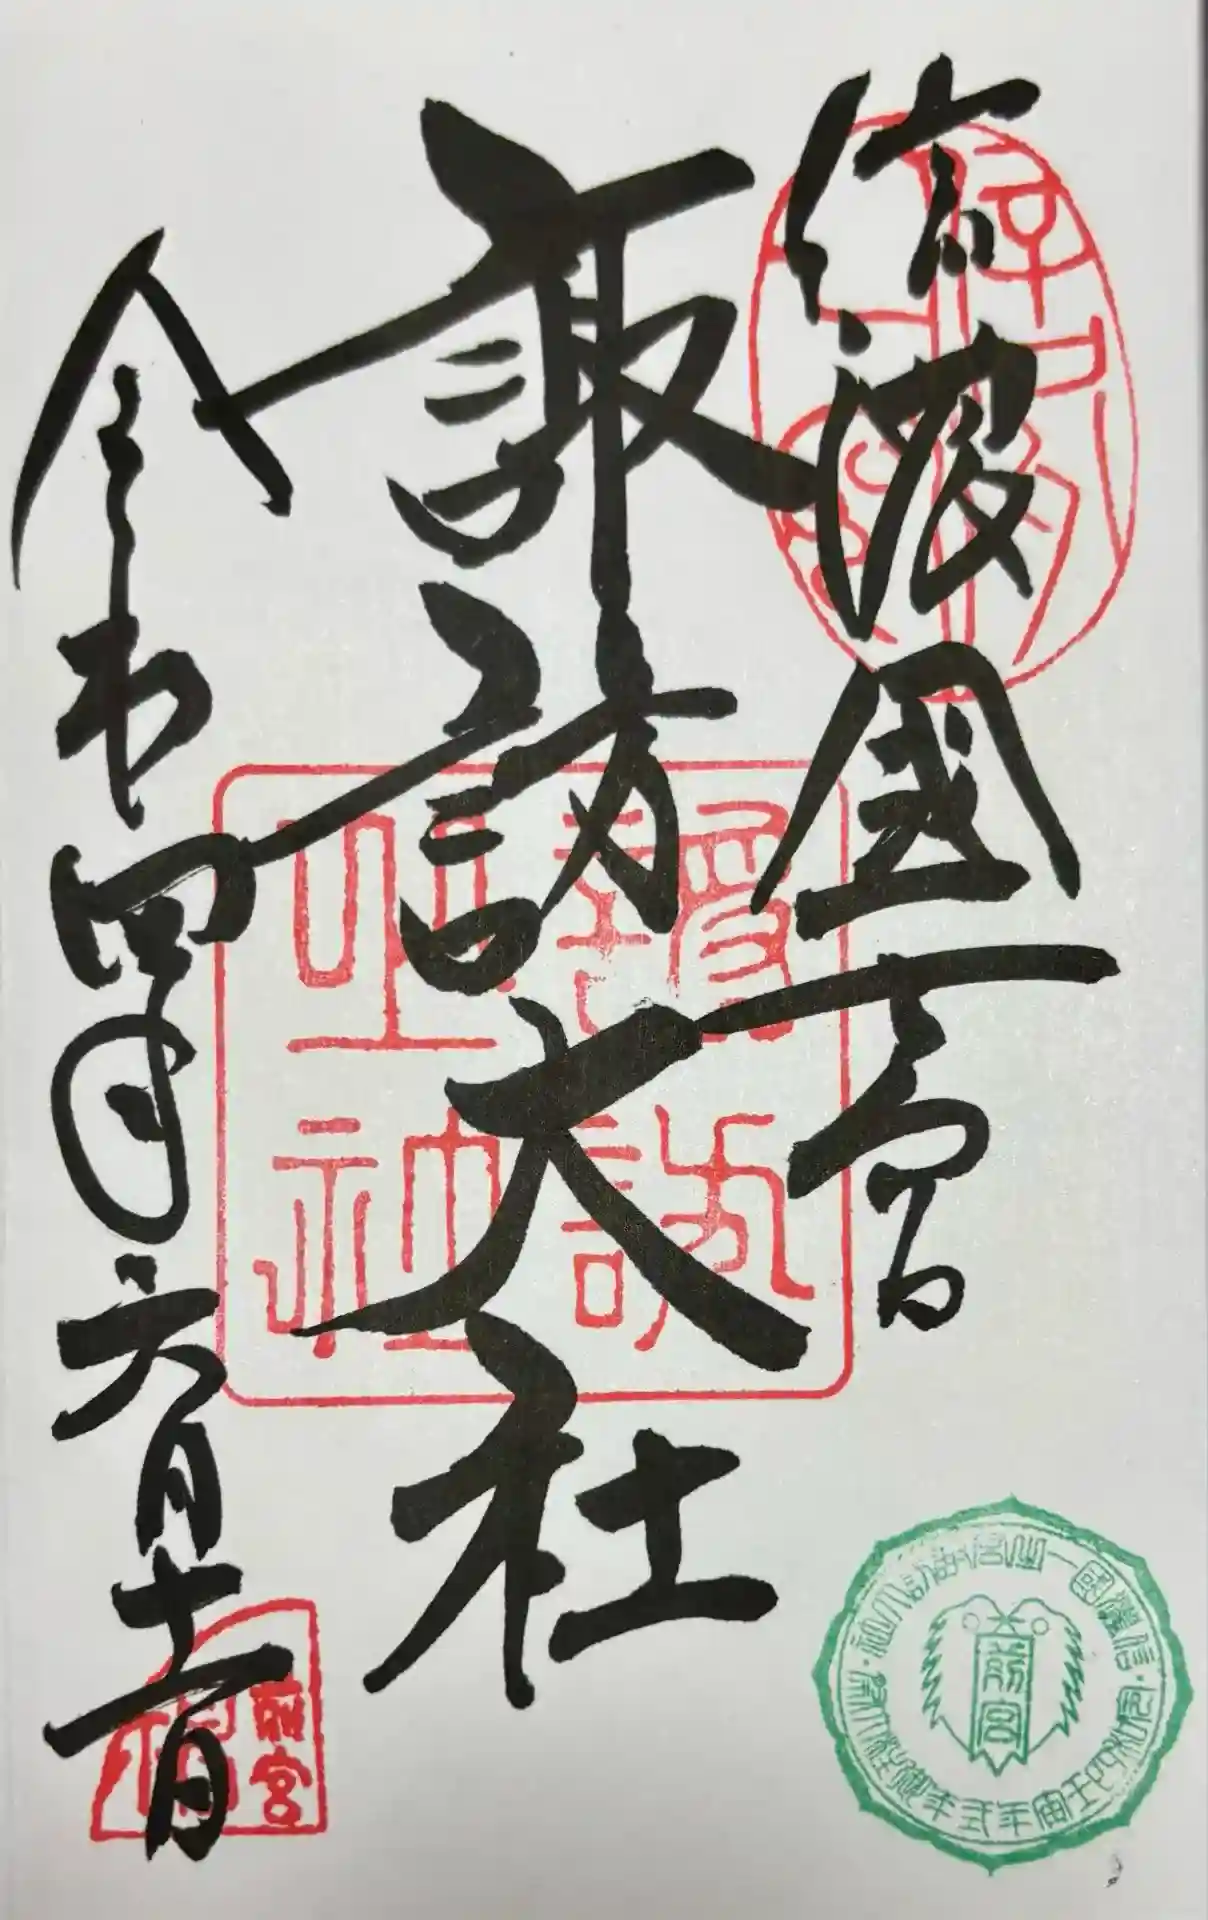 信濃國一之宮
諏訪大社
令和四年六月十一日
前宮
信濃國一之宮諏訪大社
前宮